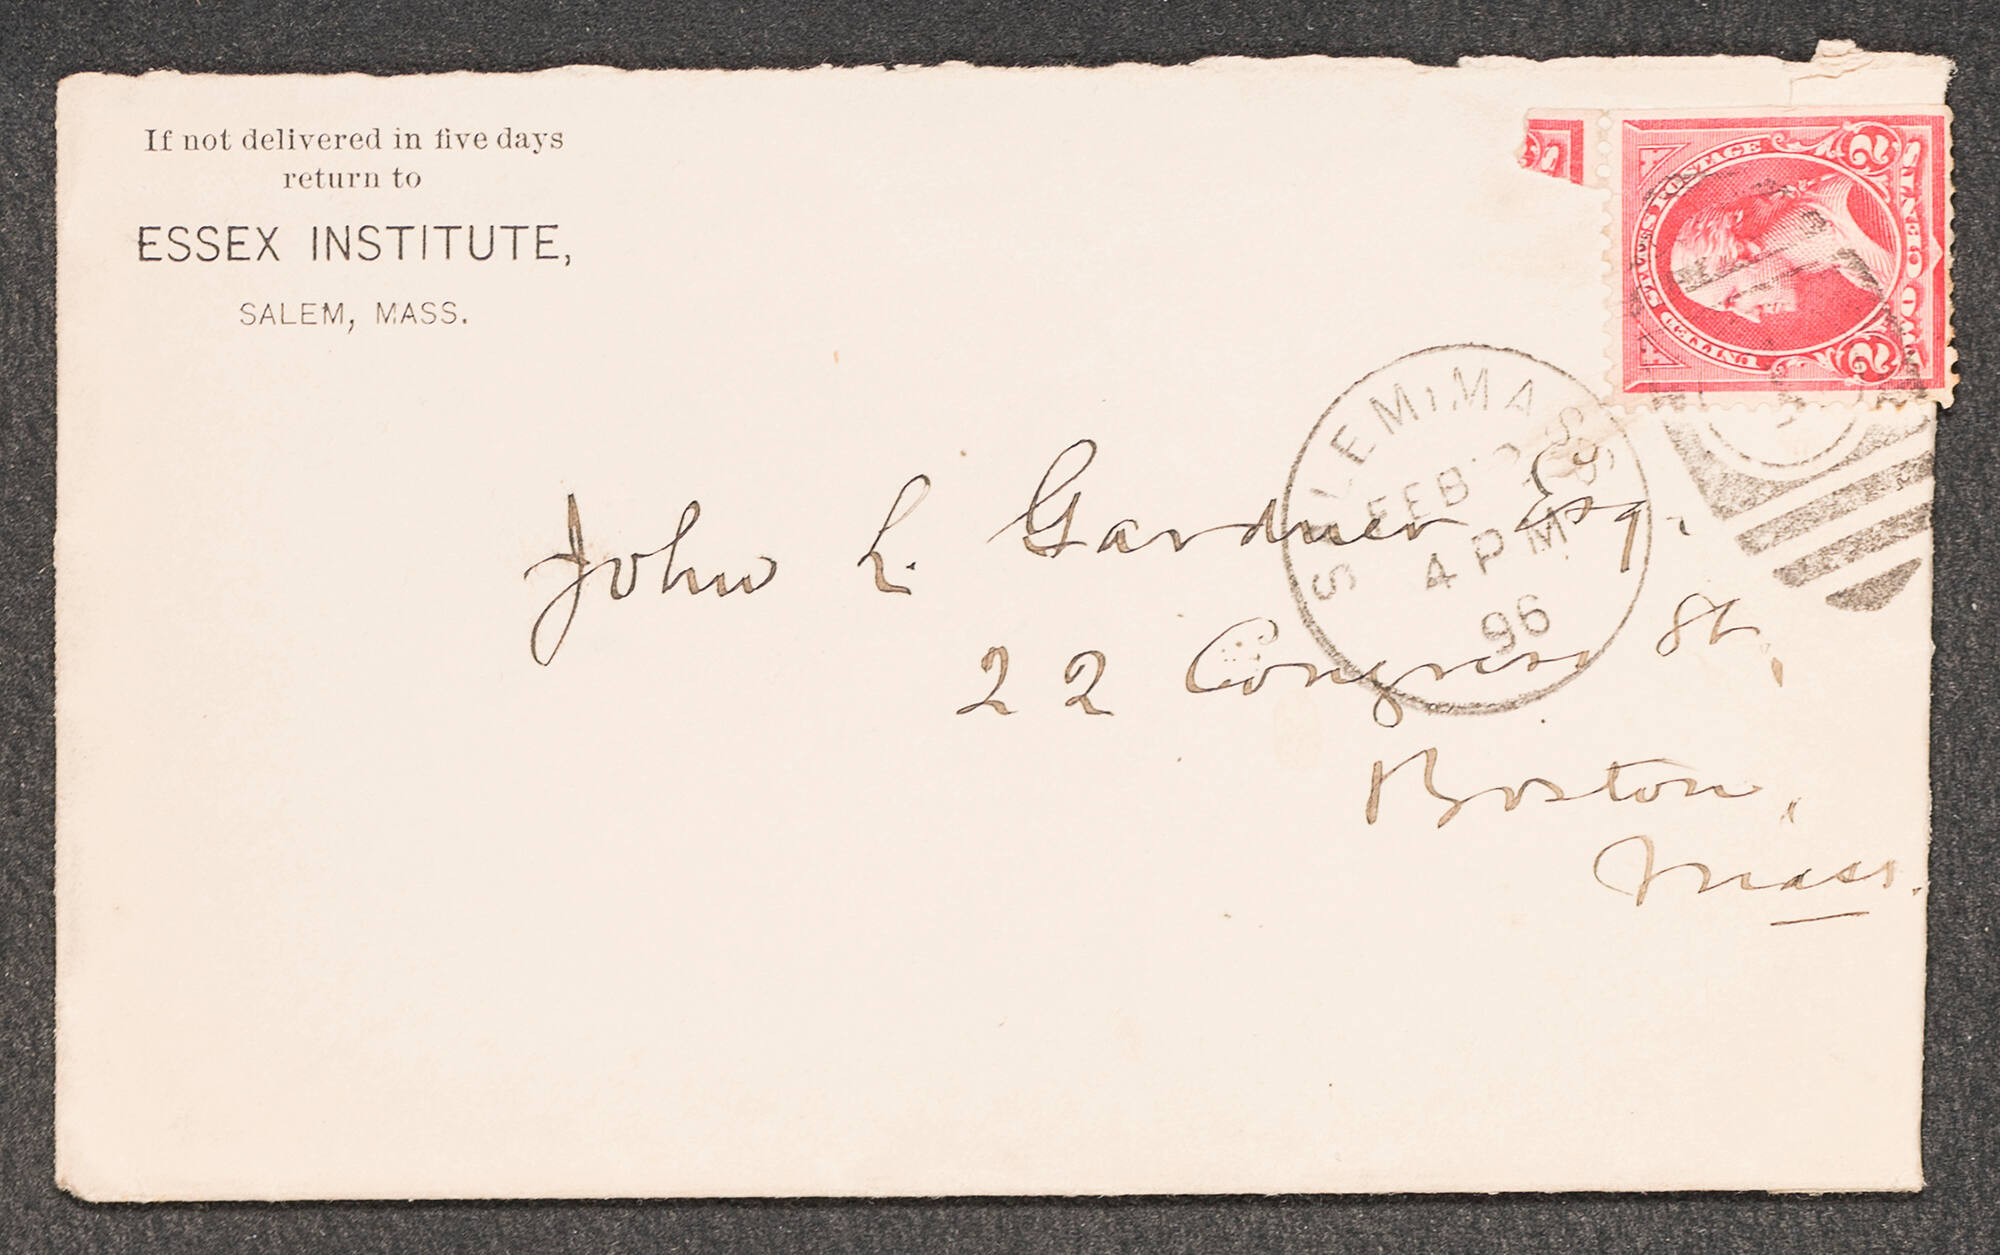 If not delivered in five days
return to
ESSEX INSTITUTE,
SALEM, MASS.
UNITED STATES POSTAGE
TWO CENTS
2 2
SALEM, MASS.
FEB
4 PM
96
John L. Gardner Esq.
22 Congress St.,
Boston,
Mass.